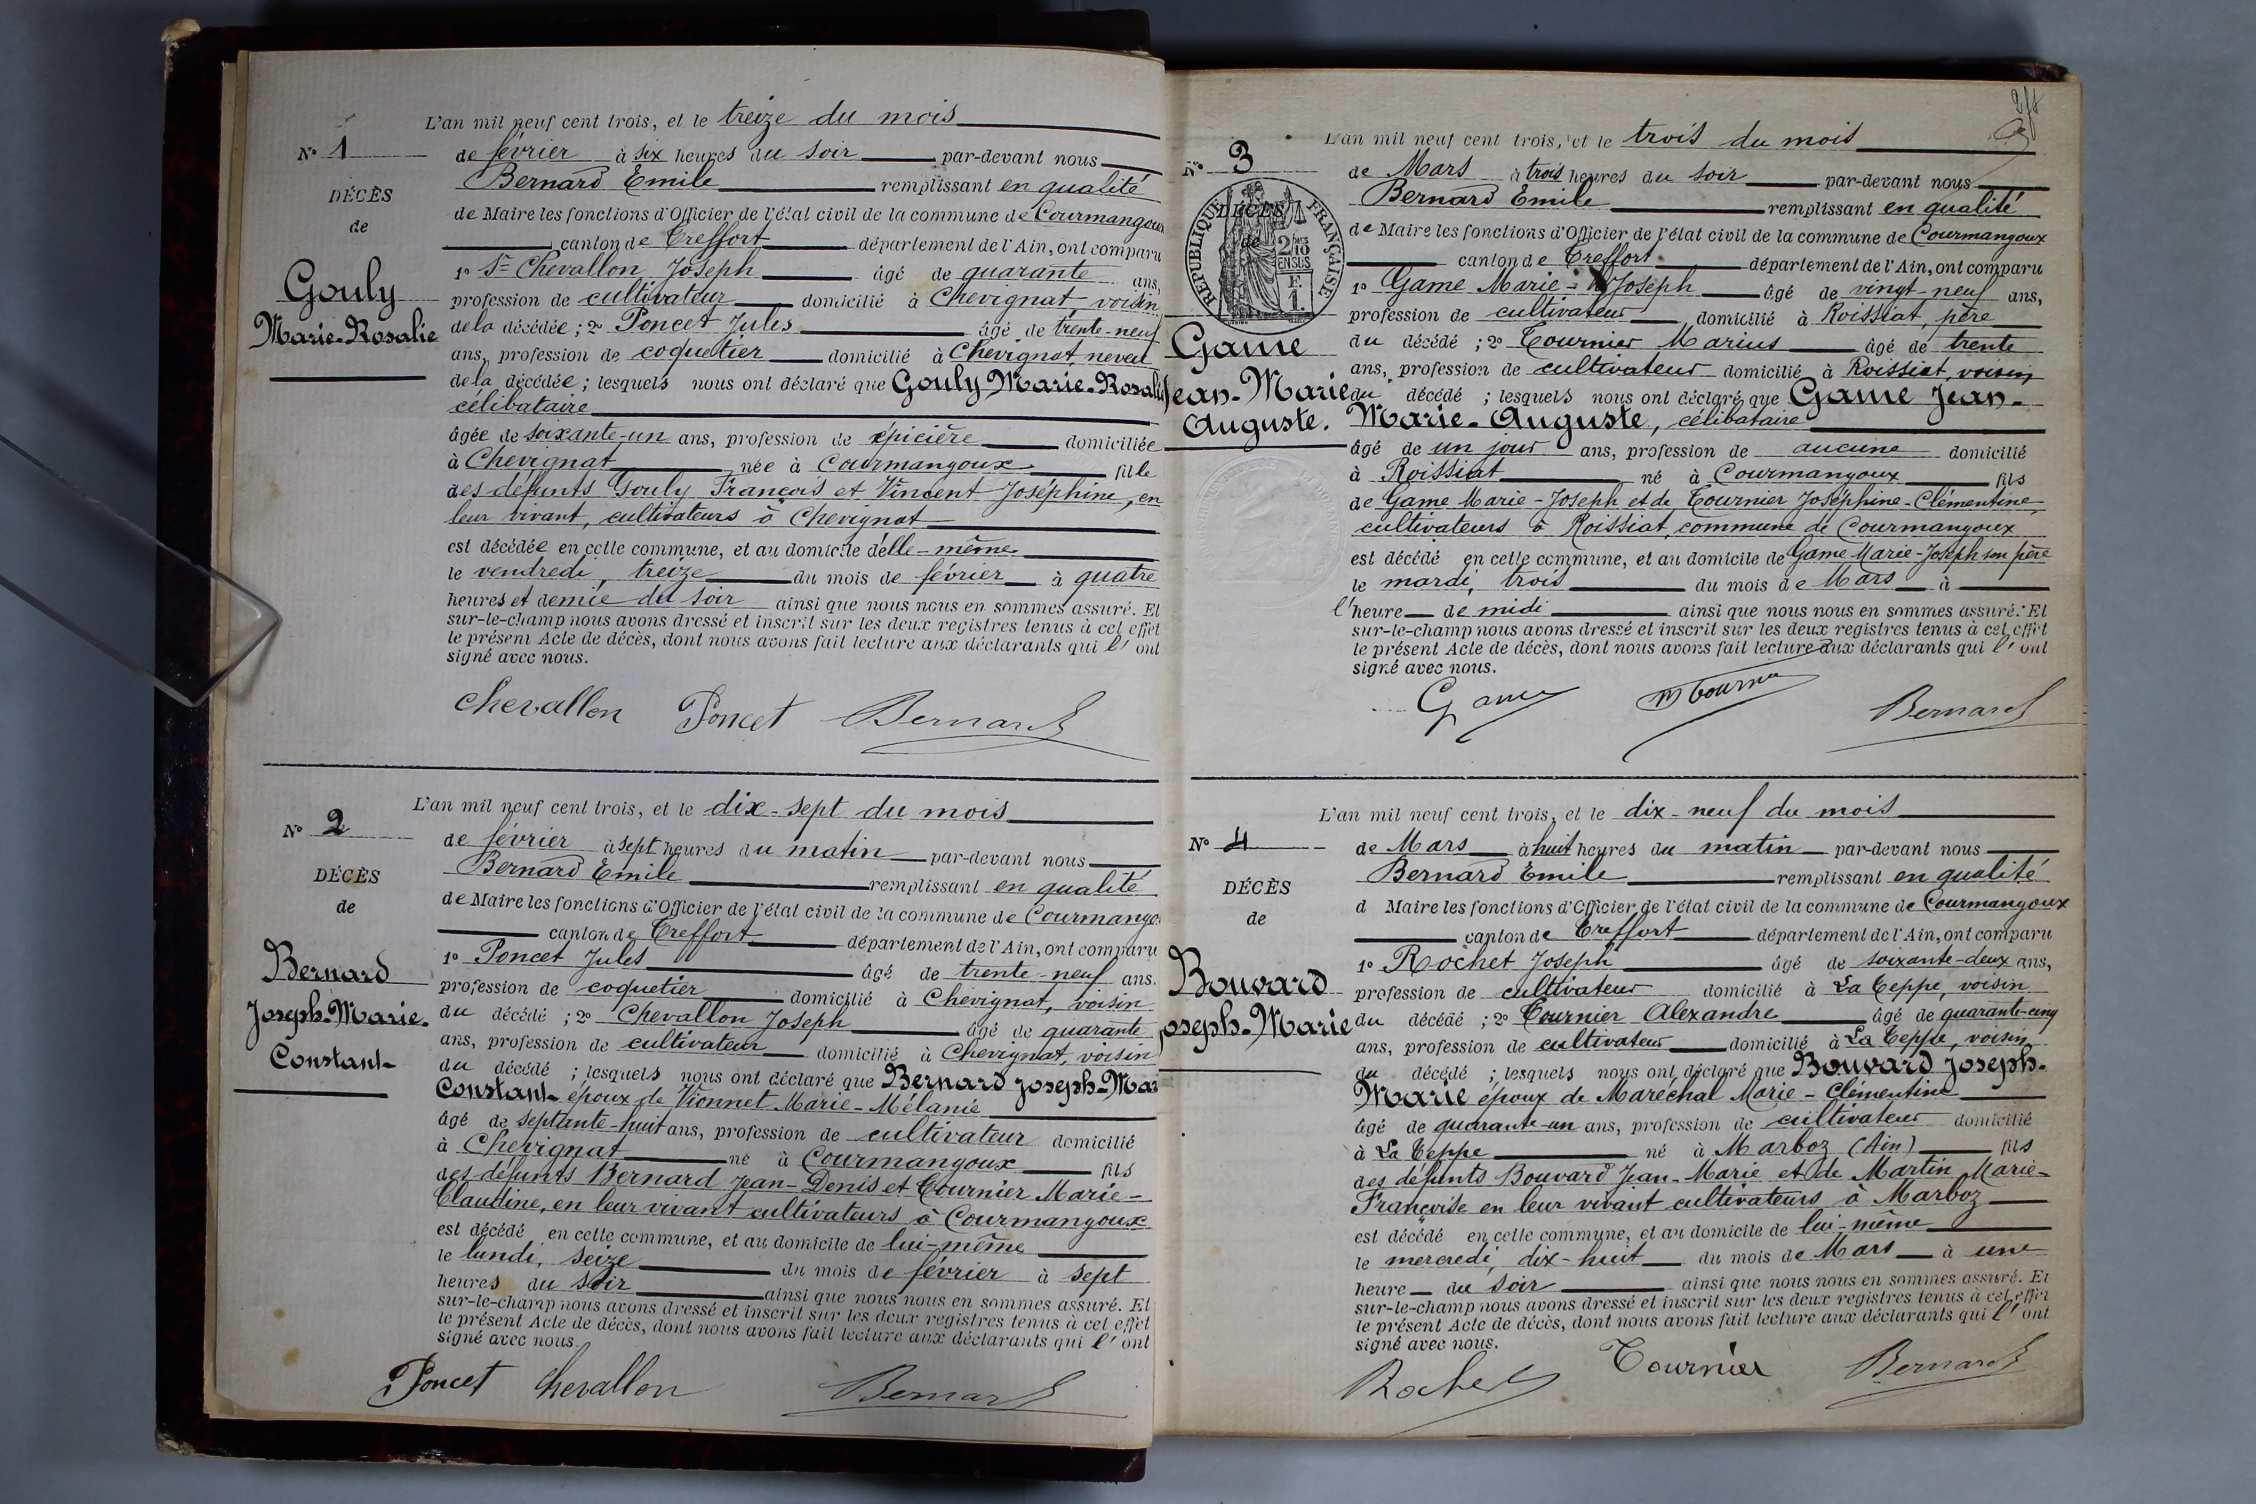 L'an mil neuf cent trois, et le treize du mois
N° 1
de février à six heures du soir par-devant nous
Bernard Emile remplissant en qualité
DÉCÈS
de Maire les fonctions d'Officier de l'état civil de la commune de Courmangoux
de
canton de Treffort département de l'Ain, ont comparu
1° Sr Chevallon Joseph âgé de quarante ans,
Gouly
profession de cultivateur domicilié à Chevignat voisin
Marie-Rosalie
de la décédée ; 2° Poncet Jules âgé de trente-neuf
ans, profession de coquetier domicilié à Chevignat neveu
de la décédée ; lesquels nous ont déclaré que Gouly Marie-Rosalie
célibataire
âgée de soixante-un ans, profession de épicière domiciliée
à Chevignat née à Courmangoux fille
des défunts Gouly François et Vincent Joséphine, en
leur vivant, cultivateurs à Chevignat
est décédée en cette commune, et au domicile d'elle-même
le vendredi, treize du mois de février à quatre
heures et demie du soir ainsi que nous nous en sommes assuré. Et
sur-le-champ nous avons dressé et inscrit sur les deux registres tenus à cet effet
le présent Acte de décès, dont nous avons fait lecture aux déclarants qui l'ont
signé avec nous.
Chevallon Poncet Bernard
L'an mil neuf cent trois, et le dix-sept du mois
N° 2
de février à sept heures du matin par-devant nous
Bernard Emile remplissant en qualité
DÉCÈS
de Maire les fonctions d'Officier de l'état civil de la commune de Courmango
de
canton de Treffort département de l'Ain, ont comparu
1° Poncet Jules âgé de trente-neuf ans.
Bernard
profession de coquetier domicilié à Chevignat, voisin
Joseph-Marie-
du décédé ; 2° Chevallon Joseph âgé de quarante
Constant
ans, profession de cultivateur domicilié à Chevignat, voisin
du décédé ; lesquels nous ont déclaré que Bernard Joseph-Mar
Constant époux de Vionnet Marie-Mélanie
âgé de septante-huit ans, profession de cultivateur domicilié
à Chevignat né à Courmangoux fils
des défunts Bernard Jean-Denis et Tournier Marie-
Claudine, en leur vivant cultivateurs à Courmangoux
est décédé en cette commune, et au domicile de lui-même
le lundi, seize du mois de février à sept
heures du soir ainsi que nous nous en sommes assuré. Et
sur-le-champ nous avons dressé et inscrit sur les deux registres tenus à cet effet
le présent Acte de décès, dont nous avons fait lecture aux déclarants qui l'ont
signé avec nous.
Poncet Chevallon Bernard
L'an mil neuf cent trois, et le trois du mois
N° 3
de Mars à trois heures du soir par-devant nous
Bernard Emile remplissant en qualité
DÉCÈS
de
RÉPUBLIQUE FRANÇAISE
2/10 EN SUS
F. 1
de Maire les fonctions d'Officier de l'état civil de la commune de Courmangoux
canton de Treffort département de l'Ain, ont comparu
1° Game Marie-Joseph âgé de vingt-neuf ans,
profession de cultivateur domicilié à Roissiat, père
Game
du décédé ; 2° Tournier Marius âgé de trente
ans, profession de cultivateur domicilié à Roissiat, voisin
Jean-Marie
du décédé ; lesquels nous ont déclaré que Game Jean-
Auguste.
Marie-Auguste, célibataire
âgé de un jour ans, profession de aucune domicilié
à Roissiat né à Courmangoux fils
de Game Marie-Joseph et de Tournier Joséphine-Clémentine,
cultivateurs à Roissiat, commune de Courmangoux
est décédé en cette commune, et au domicile de Game Marie-Joseph son père
le mardi, trois du mois de Mars à
l'heure de midi ainsi que nous nous en sommes assuré. Et
sur-le-champ nous avons dressé et inscrit sur les deux registres tenus à cet effet
le présent Acte de décès, dont nous avons fait lecture aux déclarants qui l'ont
signé avec nous.
Game M Tournier Bernard
L'an mil neuf cent trois, et le dix-neuf du mois
N° 4
de Mars à huit heures du matin par-devant nous
Bernard Emile remplissant en qualité
DÉCÈS
d Maire les fonctions d'Officier de l'état civil de la commune de Courmangoux
de
canton de Treffort département de l'Ain, ont comparu
1° Rochet Joseph âgé de soixante-deux ans,
Bouvard
profession de cultivateur domicilié à La Teppe, voisin
Joseph-Marie
du décédé ; 2° Tournier Alexandre âgé de quarante-cinq
ans, profession de cultivateur domicilié à La Teppe, voisin
du décédé ; lesquels nous ont déclaré que Bouvard Joseph-
Marie époux de Maréchal Marie-Clémentine
âgé de quarante-un ans, profession de cultivateur domicilié
à La Teppe né à Marboz (Ain) fils
des défunts Bouvard Jean-Marie et de Martin Marie-
Françoise en leur vivant cultivateurs à Marboz
est décédé en cette commune, et au domicile de lui-même
le mercredi, dix-huit du mois de Mars à une
heure du soir ainsi que nous nous en sommes assuré. Et
sur-le-champ nous avons dressé et inscrit sur les deux registres tenus à cet effet
le présent Acte de décès, dont nous avons fait lecture aux déclarants qui l'ont
signé avec nous.
Rochet Tournier Bernard